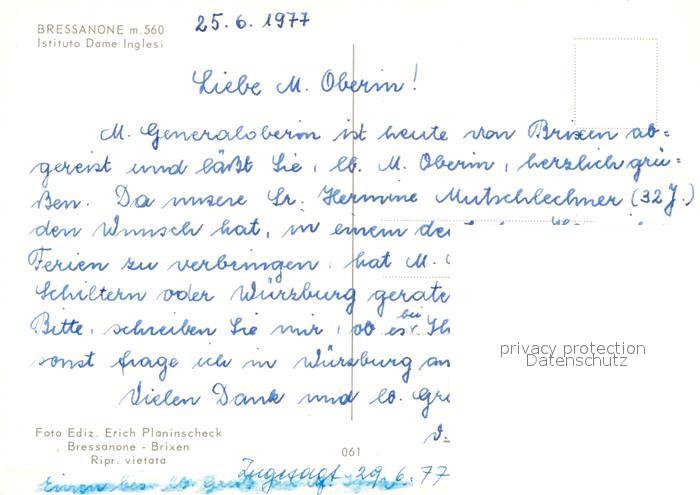 BRESSANONE m.560
Istituto Dame Inglesi
25.6.1977
Liebe M. Oberin!
M. Generaloberin ist heute von Brixen ab=
gereist und läßt Sie, lb. M. Oberin, herzlich grü=
ßen. Da unsere Sr. Hermine Mutschlechner (32 J.)
den Wunsch hat, in einem
Ferien zu verbringen, hat M.
Schiltern oder Würzburg gerate
Bitte, schreiben Sie mir, ob es bei Ih
sonst frage ich in Würzburg an
Vielen Dank und lb. Gr
privacy protection
Datenschutz
Foto Ediz. Erich Planinscheck
Bressanone - Brixen
Ripr. vietata
061
Zugesagt 29.6.77